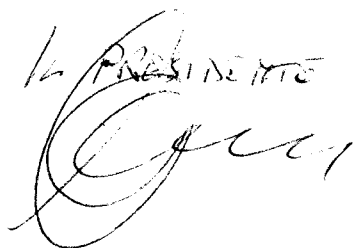 IL PRESIDENTE